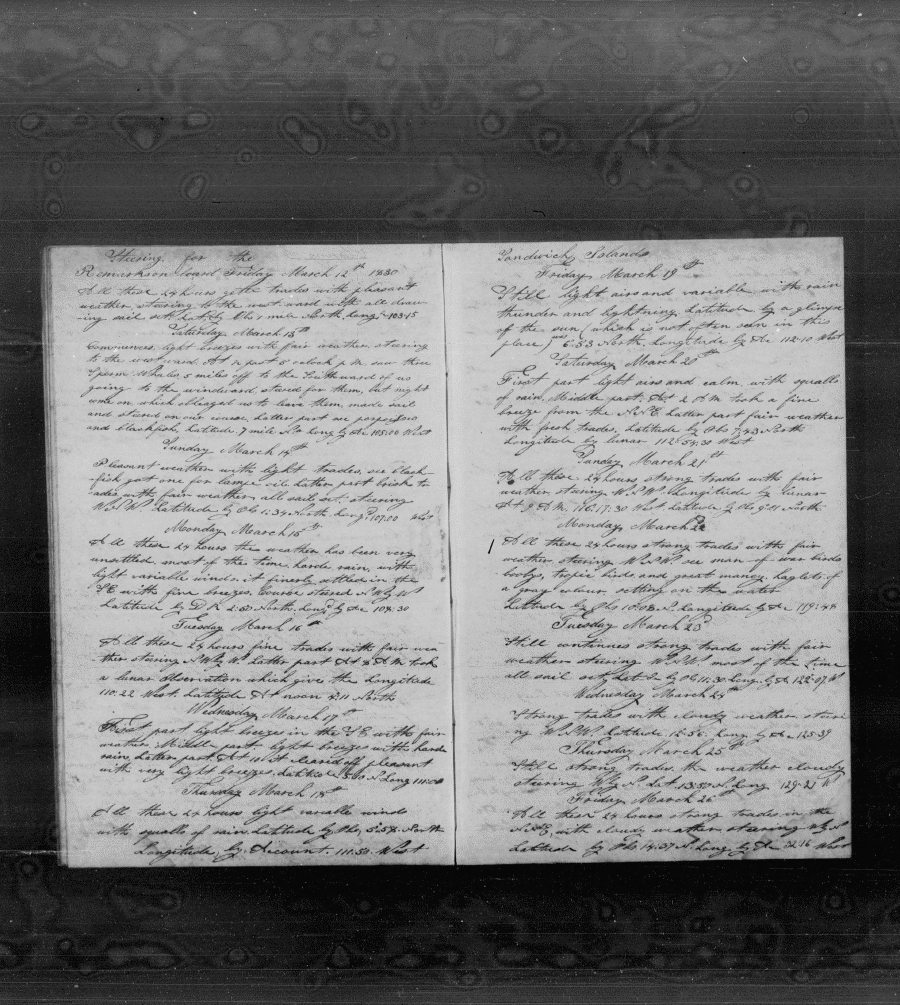 Steering for the
Remarks on board Friday March 12th 1830
All these 24 hours the trades with pleasant
weather steering to the westward with all draw-
ing sail set Lat by Obs 1 mile North Long 103-15
Saturday March 13th
Commences light breezes with fair weather, steering
to the westward At ½ past 5 oclock p m saw three
Sperm Whales 5 miles off to the Southward of us
going to the windward stered for them, but night
come on which obleaged us to leave them, made sail
and stered on our course, Latter part see porpoises
and blackfish, Latitude 7 mile No Long by Ac 105:00 West
Sunday March 14th
Pleasant weather with light trades, see black-
fish got one for lamp oil Latter part brisk tr-
ades with fair weather all sail set, steering
Latitude by Obs 1:34 North Longd 107:00 West
Monday March 15th
All these 24 hours the weather has been very
unsettled most of the time harde rain, with
light variable winds, it finerly settled in the
SE with fine breezes, Course stered NWbyW
Latitude by D R 2:50 North Longd by Ac 108:30
Tuesday March 16th
All these 24 hours fine trades with fair wea-
ther stering NWbyW Latter part At 8 AM took
a lunar Observation which give the Longitude
110:22 West. Latitude At noon 4:11 North
Wednesday March 17th
First part light breezes in the SE with fair
weather Middle part light breezes with harde
rain, Latter part At 10 cleared off pleasant
with very light breezes, Latitude N Long 111:00
Thursday March 18th
All these 24 hours light variable winds
with squalls of rain Latitude by Obs, 5:58 North
Longitude by Account 111:50 West
Sandwich Islands
Friday March 19th
Still light airs and variable with rain
thunder and lightning, Latitude by a glimpse
of the sun (which is not often seen in this
place) was 6:53 North Longitude by Ac 112:10 West
Saturday March 20th
First part light airs and calm with squalls
of rain, Middle part, At 2 AM took a fine
breeze from the NE Latter part fair weather
with fresh trades, Latitude by Obs 7:43 North
Longitude by lunar 112:54:30 West
Sunday March 21st
All these 24 hours strong trades with fair
weather stering WNW Longitude by lunar
At 9 AM 116:17:30 West Latitude by Obs 9:01 North
Monday March 22
All these 24 hours strong trades with fair
weather stering WNW see man-of-war birds
boobys, tropic birds and great maney Haglets of
a gray colour setting on the water
Latitude by Obs 10:08 N. Longitude by Ac 119:48
Tuesday March 23d
Still continues strong trades with fair
weather stering WNW most of the time
all sail set Lat by Ob 11:30 Long. by Ac 122:07 W
Wednesday March 24th
Strong trades with cloudy weather steari
ng WNW Latitude 12:56 Long by Ac 125:39
Thursday March 25th
Still strong trades the weather cloudy
steering WbyN Lat. 13:50 N. Long 129:21 W
Friday March 26th
All these 24 hours strong trades in the
NE, with cloudy weather steering WbyN
Latitude by Obs 14:37 N. Long by Ac 32:16 West